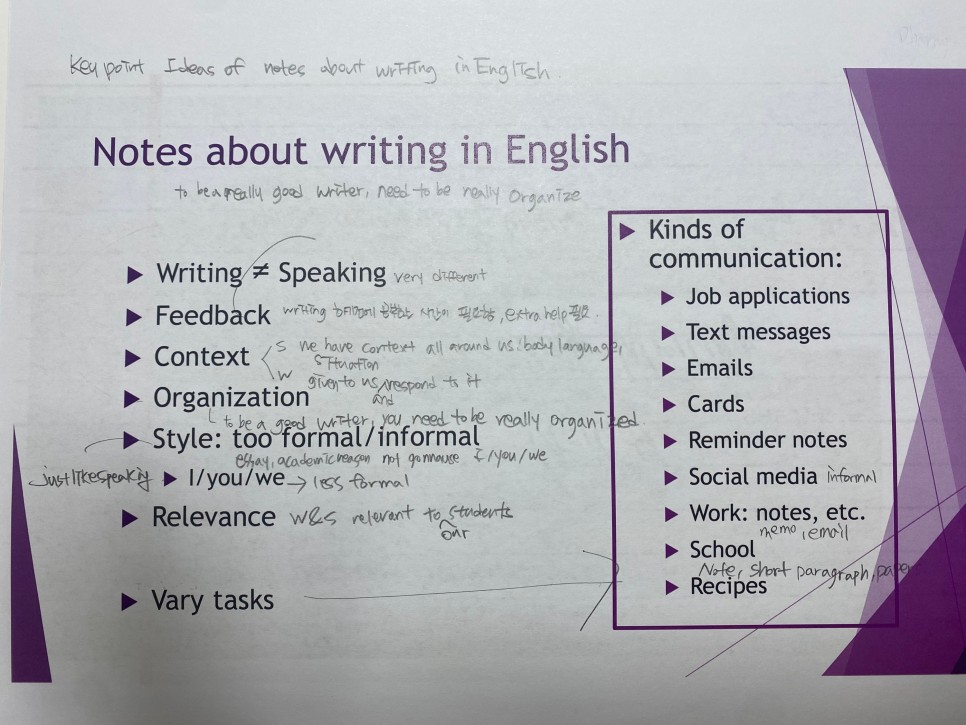 Key point Ideas of notes about writing in English
Notes about writing in English
to be a really good writer, need to be really organize
▶ Writing ≠ Speaking very different
▶ Feedback writing 하기때문에 시간이 필요함, extra help 필요.
▶ Context S we have context all around us: body language,
situation
W given to us, and respond to it
▶ Organization
to be a good writer, you need to be really organized
▶ Style: too formal/informal
essay, academic reason not gonna use I/you/we
just like speaking ▶ I/you/we → less formal
▶ Relevance W&S relevant to our students
▶ Vary tasks
▶ Kinds of
communication:
▶ Job applications
▶ Text messages
▶ Emails
▶ Cards
▶ Reminder notes
▶ Social media informal
▶ Work: notes, etc.
memo, email
▶ School
Note, short paragraph, papers
▶ Recipes